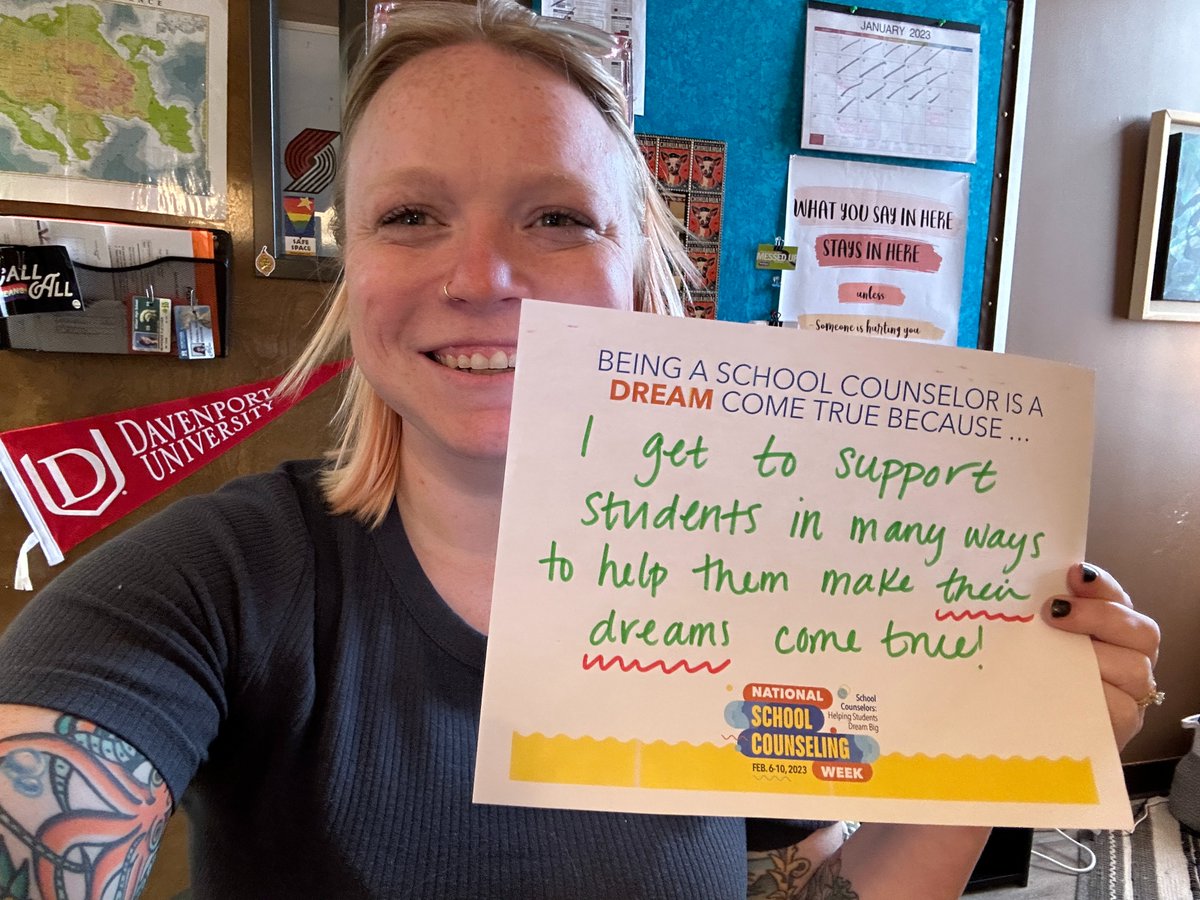 JANUARY 2023
SAFE
SPACE
WHAT YOU SAY IN HERE
STAYS IN HERE
unless
Someone is hurting you
MESSED UP
DAVENPORT
UNIVERSITY
BEING A SCHOOL COUNSELOR IS A
DREAM COME TRUE BECAUSE ...
I get to support
students in many ways
to help them make their
dreams come true!
NATIONAL
SCHOOL
COUNSELING
WEEK
FEB. 6-10, 2023
School
Counselors:
Helping Students
Dream Big